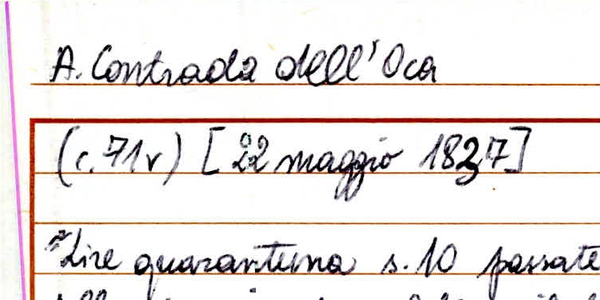 A. Contrada dell'Oca
(c. 71v) [22 maggio 1827]
"Lire quarantuna s. 10 passate